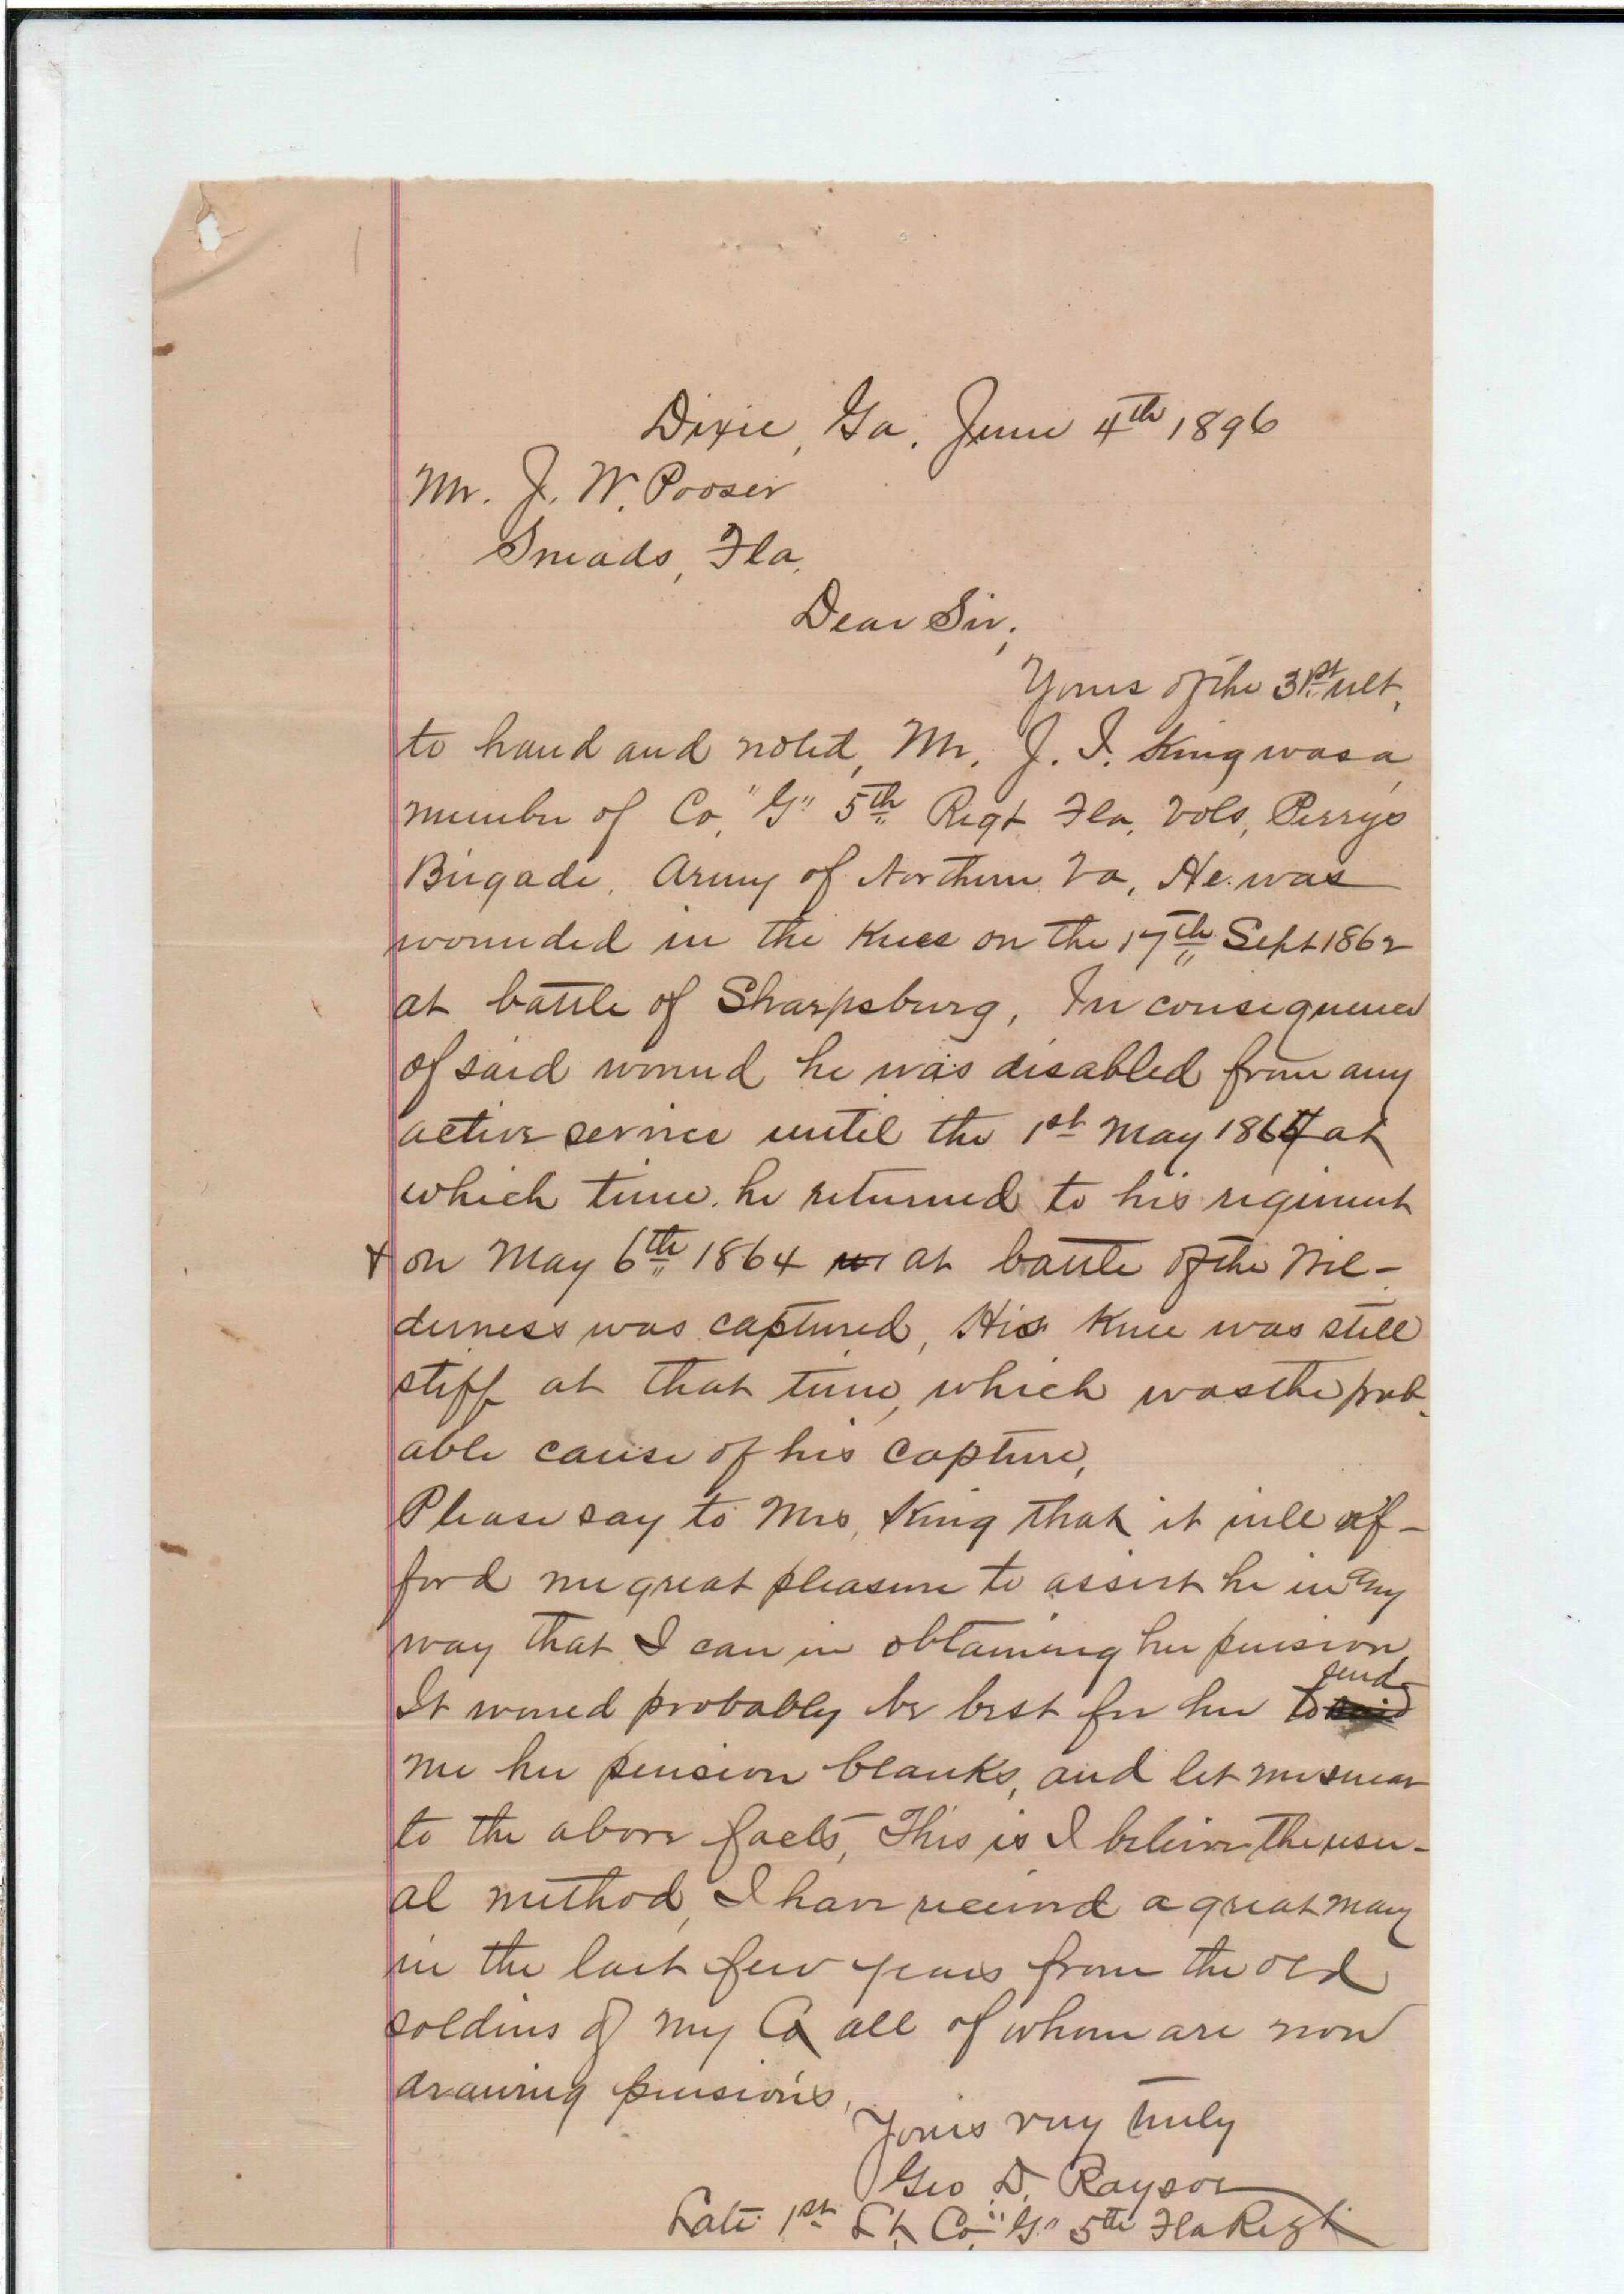 Dixie, Ga. June 4th 1896
Mr. J. W. Pooser
Sneads, Fla.
Dear Sir,
Yours of the 31st ult.
to hand and noted, Mr. J. I. King was a
member of Co, "G" 5th Regt Fla, Vols, Perrys
Brigade, Army of Northern Va, He was
wounded in the Knee on the 17th Sept 1862
at battle of Sharpsburg, In consequence
of said wound he was disabled from any
active service until the 1st May 1864 at
which time he returned to his regiment
& on May 6th 1864 at battle of the Wil-
derness was captured, His Knee was still
stiff at that time, which was the prob-
able cause of his capture,
Please say to Mrs, King that it will af-
ford me great pleasure to assist he in any
way that I can in obtaining her pension
It would probably be best for her to send
me her pension blanks, and let me swear
to the above facts, This is I believe the usu-
al method, I have received a great many
in the last few years from the old
soldiers of my Co all of whom are now
drawing pensions,
Yours very truly
Geo D. Raysor
Late 1st Lt. Co "G" 5th Fla Regt